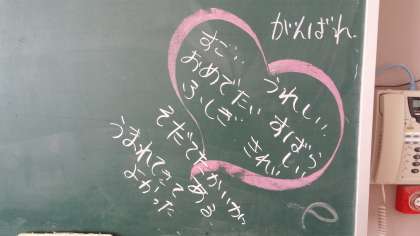 がんばれ
すごい
おめでたい
ふしぎ
うれしい
すばら
しい
きれい
そだてたかいが
ある
うまれてきて
よかった